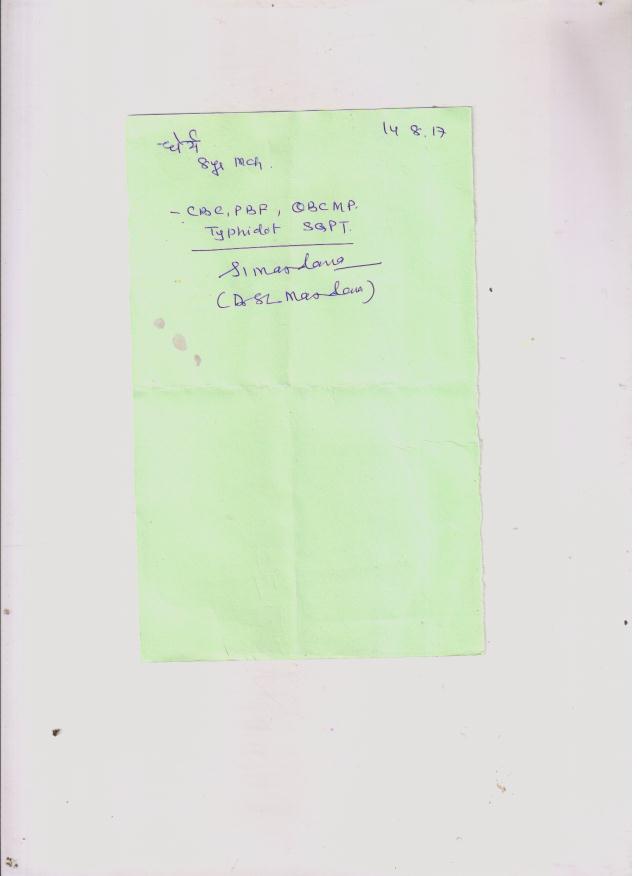 धैर्य 14 8.17
8yr Mch.
- CBC, PBF, QBCMP.
Typhidot SGPT.
(Dr SL Mardana)